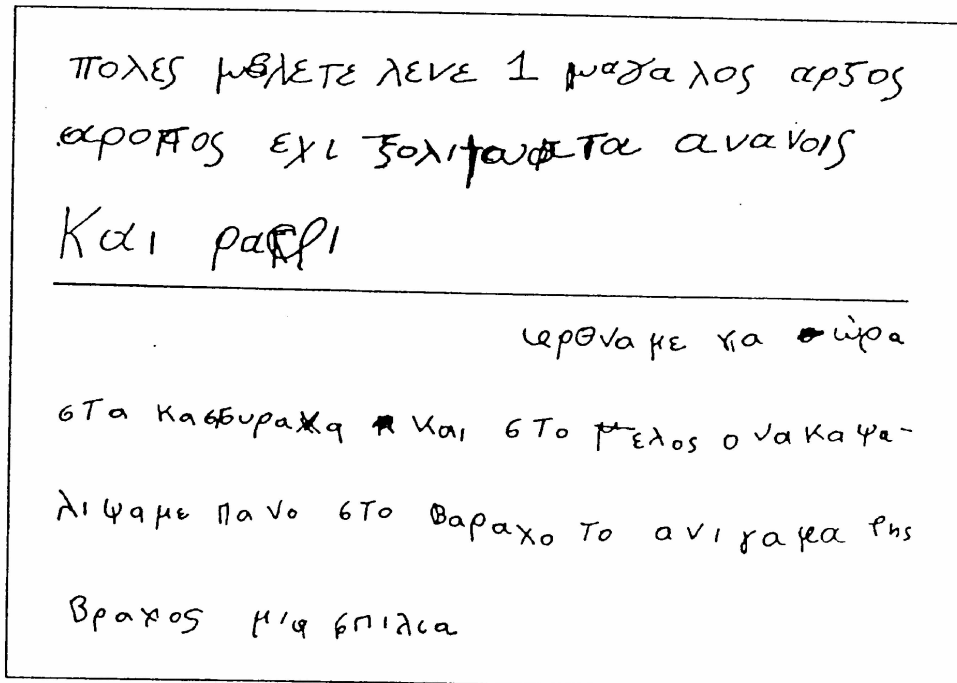 πολες μελετε λενε 1 μαγαλος αρξος
αροπος εχι ξολι τα ανανοις
και
για ώρα
στα και στο μελος ο νακαψα-
λιψαμε πανο στο βαραχο το ανιγαμα της
βραχος μια σπιλια